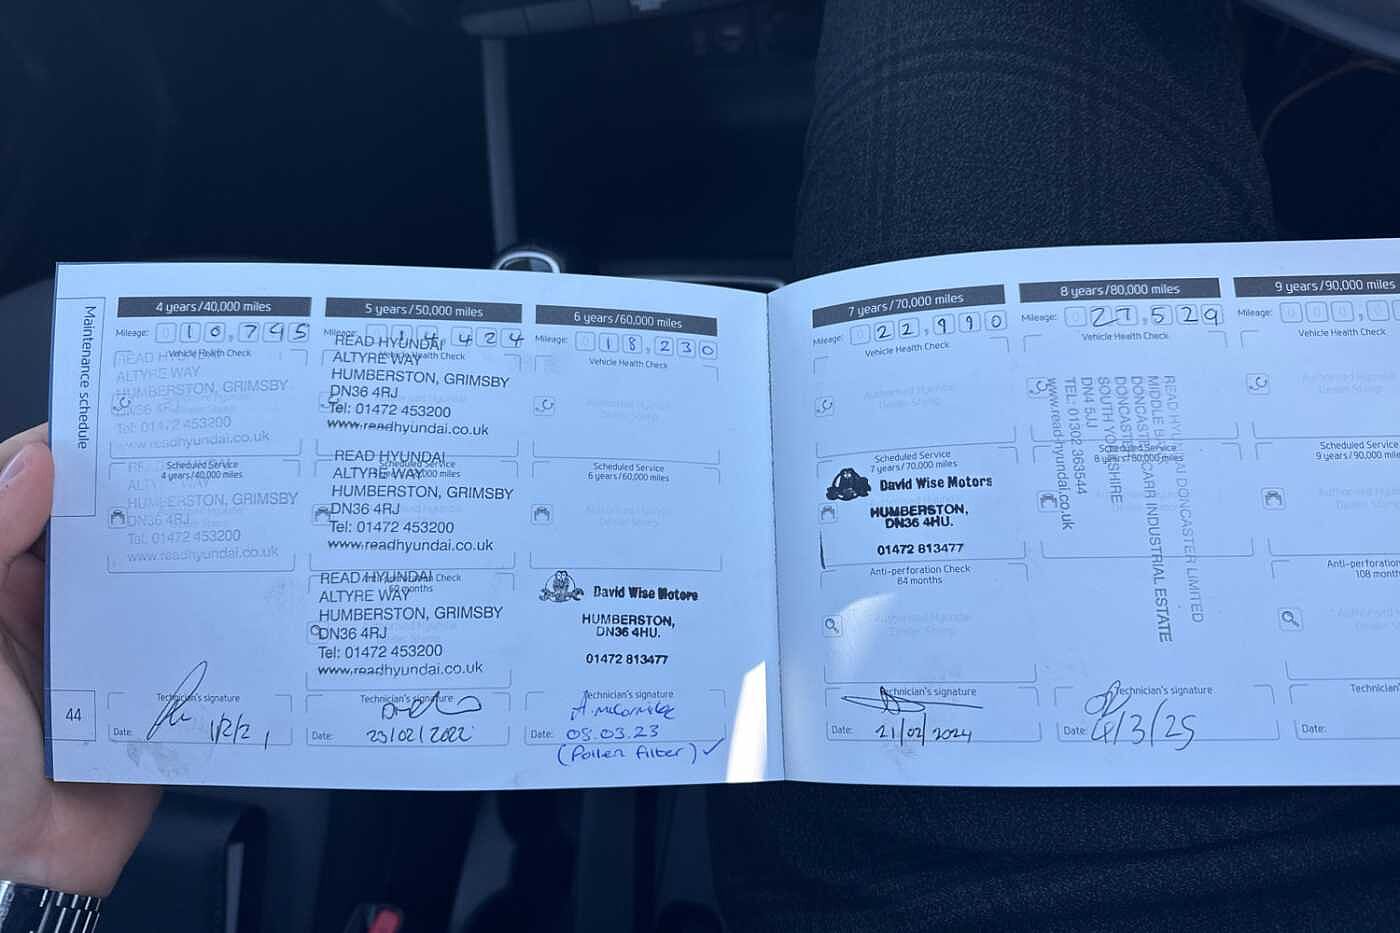 Maintenance schedule
44
4 years/40,000 miles
Mileage: 010,745
Vehicle Health Check
READ HYUNDAI
ALTYRE WAY
HUMBERSTON, GRIMSBY
DN36 4RJ
Tel: 01472 453200
www.readhyundai.co.uk
Scheduled Service
4 years/40,000 miles
READ HYUNDAI
ALTYRE WAY
HUMBERSTON, GRIMSBY
DN36 4RJ
Tel: 01472 453200
www.readhyundai.co.uk
Technician's signature
Date: 1/2/21
5 years/50,000 miles
Mileage: 014,424
Vehicle Health Check
READ HYUNDAI
ALTYRE WAY
HUMBERSTON, GRIMSBY
DN36 4RJ
Tel: 01472 453200
www.readhyundai.co.uk
Scheduled Service
5 years/50,000 miles
READ HYUNDAI
ALTYRE WAY
HUMBERSTON, GRIMSBY
DN36 4RJ
Tel: 01472 453200
www.readhyundai.co.uk
Anti-perforation Check
60 months
READ HYUNDAI
ALTYRE WAY
HUMBERSTON, GRIMSBY
DN36 4RJ
Tel: 01472 453200
www.readhyundai.co.uk
Technician's signature
Date: 23/02/2022
6 years/60,000 miles
Mileage: 018,230
Vehicle Health Check
Authorised Hyundai
Dealer Stamp
Scheduled Service
6 years/60,000 miles
Authorised Hyundai
Dealer Stamp
David Wise Motors
HUMBERSTON,
DN36 4HU.
01472 813477
Technician's signature
Date: 08.03.23
(Pollen filter) ✓
7 years/70,000 miles
022,990
Vehicle Health Check
Authorised Hyundai
Dealer Stamp
Scheduled Service
7 years/70,000 miles
David Wise Motors
HUMBERSTON,
DN36 4HU.
01472 813477
Anti-perforation Check
84 months
Authorised Hyundai
Dealer Stamp
Technician's signature
Date: 21/02/2024
8 years/80,000 miles
Mileage: 027,529
Vehicle Health Check
Scheduled Service
8 years/80,000 miles
READ HYUNDAI DONCASTER LIMITED
MIDDLE BANK
CARR INDUSTRIAL ESTATE
DONCASTER
SOUTH YORKSHIRE
DN4 5JJ
TEL: 01302 363544
www.read-hyundai.co.uk
Technician's signature
Date: 4/3/25
9 years/90,000 miles
Mileage: 000,0
Vehicle Health Check
Authorised Hyundai
Dealer Stamp
Scheduled Service
9 years/90,000 miles
Authorised Hyundai
Dealer Stamp
Anti-perforation
108 months
Technician's
Date: